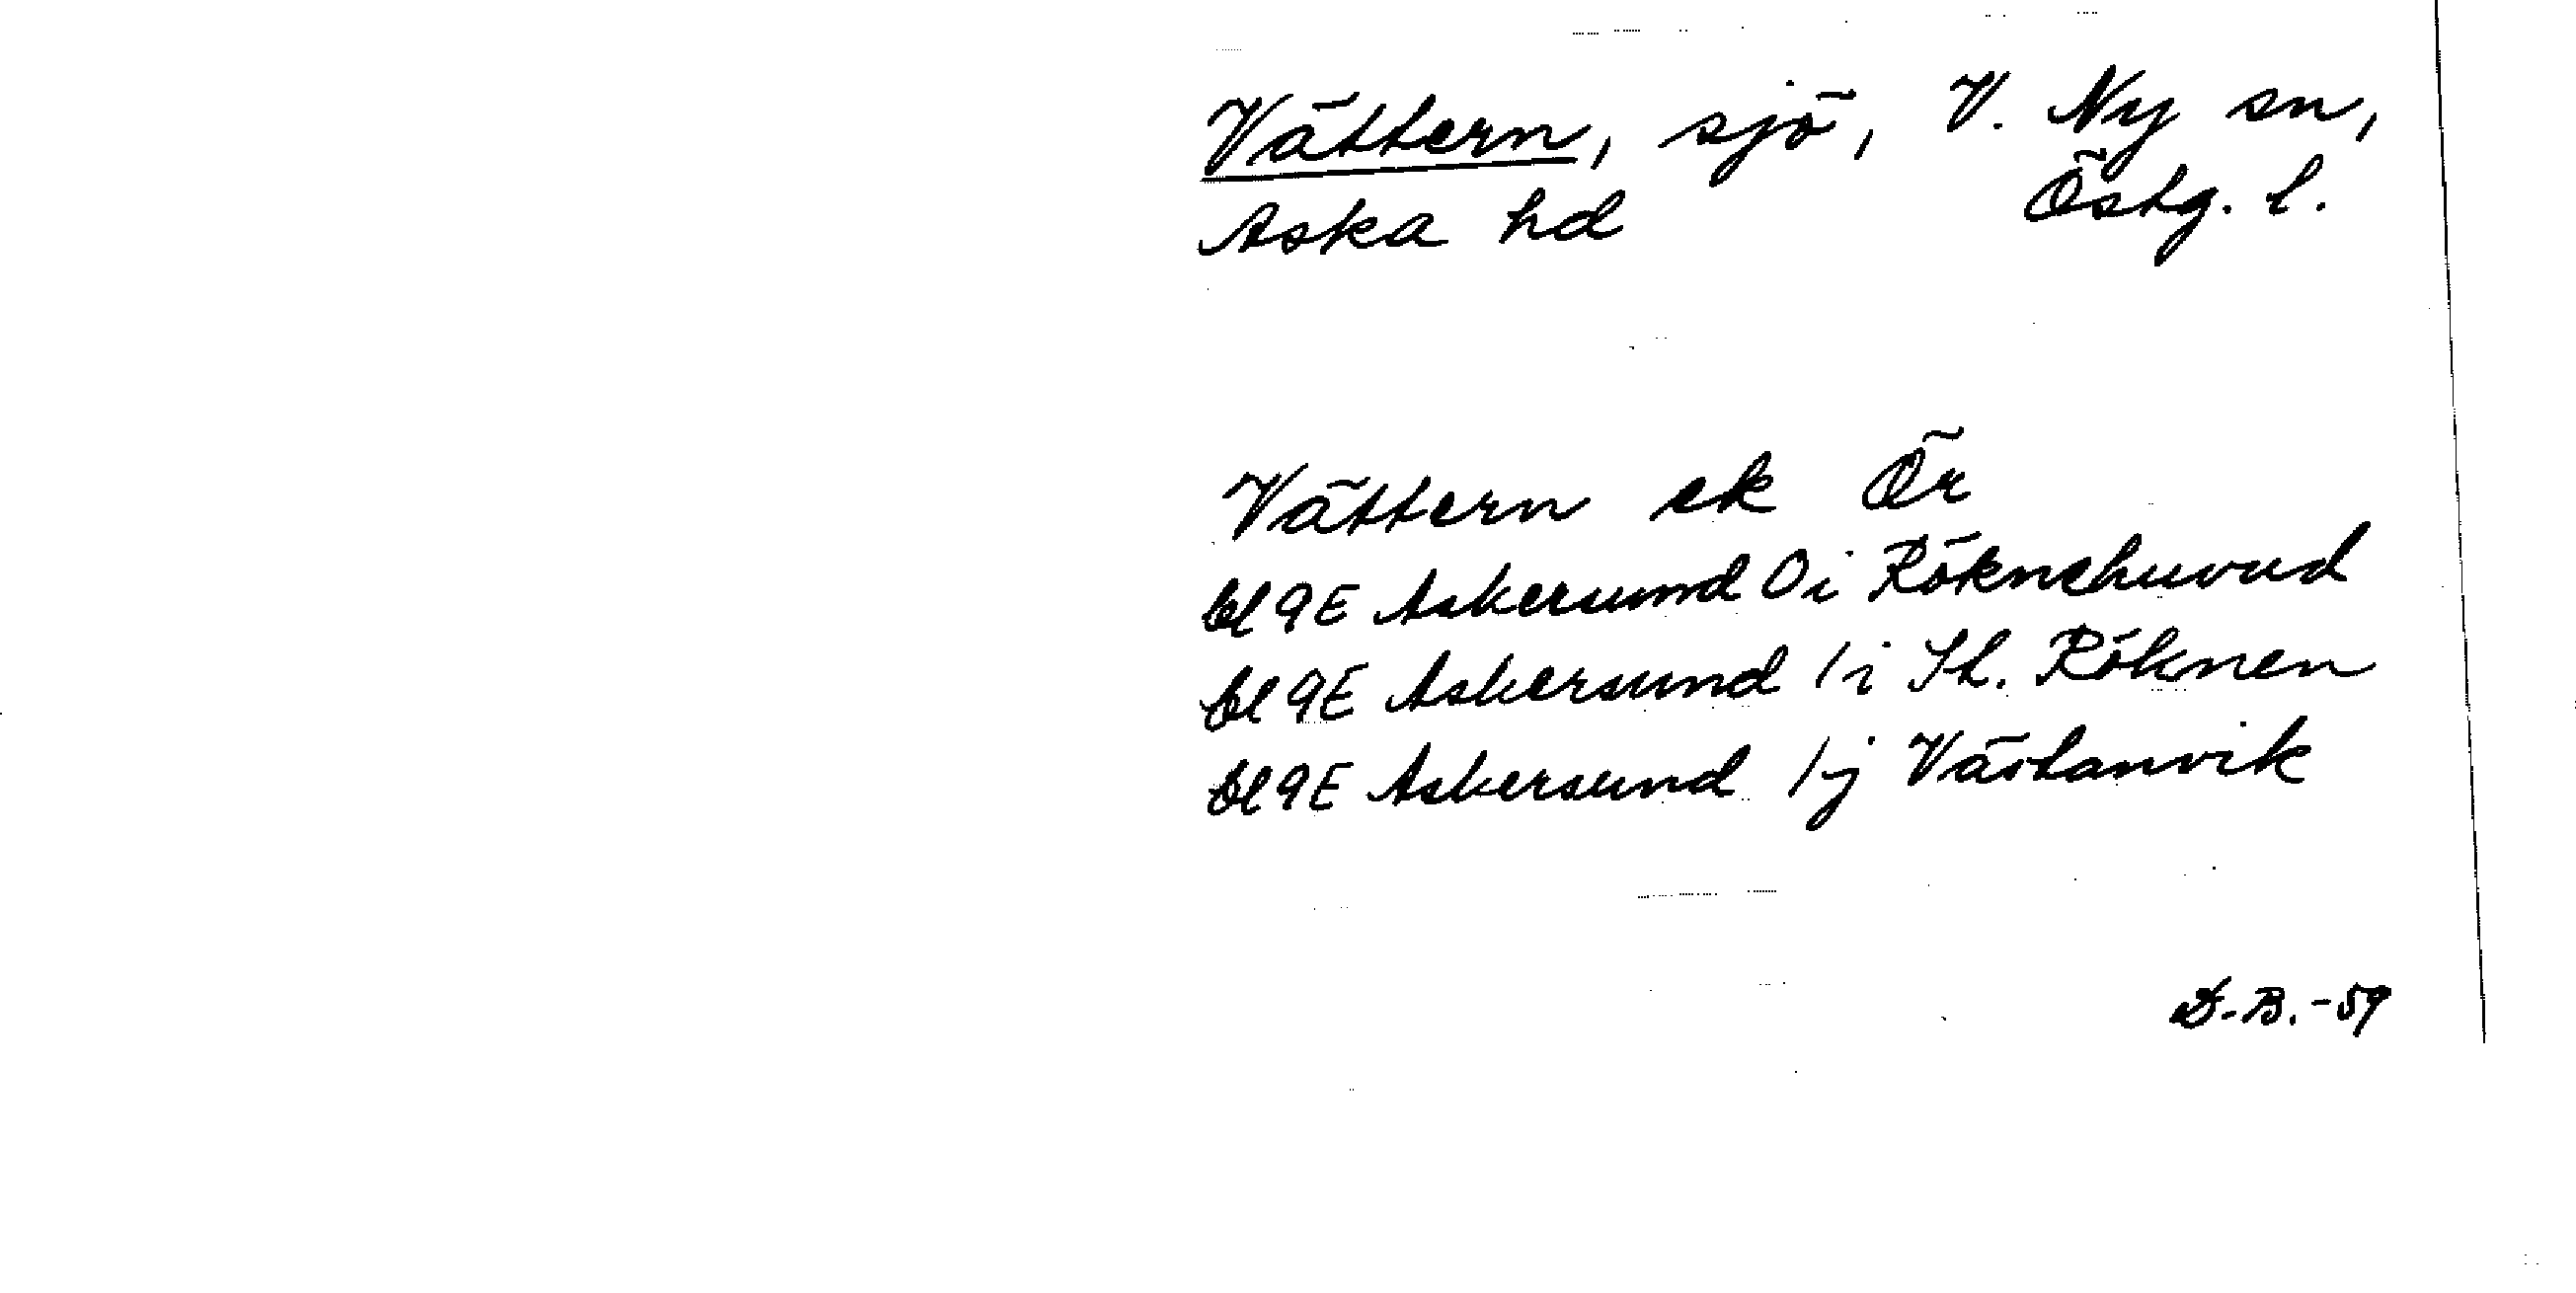 Vättern, sjö, V. Ny sn,
Aska hd Östg. l.
Vättern ek Ör
bl 9E Askersund 0i Röknehuvud
bl 9E Askersund 1i St. Röknen
bl 9E Askersund 1j Västanvik
D-B.-59